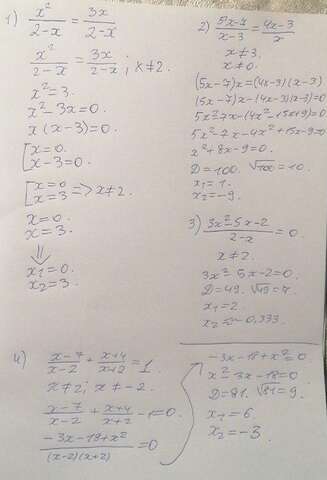 1) x²/(2-x) = 3x/(2-x)
x²/(2-x) = 3x/(2-x) ; x≠2.
x²=3.
x²-3x=0.
x(x-3)=0.
[x=0.
x-3=0.
[x=0
x=3 => x≠2.
x=0.
x=3.
⇓
x₁=0.
x₂=3.
2) (5x-7)/(x-3) = (4x-3)/x
x≠3.
x≠0.
(5x-7)x=(4x-3)(x-3)
(5x-7)x-(4x-3)(x-3)=0
5x²-7x-(4x²-15x+9)=0
5x²-7x-4x²+15x-9=0
x²+8x-9=0.
D=100. √100=10.
x₁=1.
x₂=-9.
3) (3x²-5x-2)/(2-x) = 0.
x≠2.
3x²-5x-2=0.
D=49. √49=7.
x₁=2.
x₂≈-0,333.
4) (x-7)/(x-2) + (x+4)/(x+2) = 1.
x≠2; x≠-2.
(x-7)/(x-2) + (x+4)/(x+2) -1=0.
(-3x-18+x²)/((x-2)(x+2)) = 0
-3x-18+x²=0.
x²-3x-18=0.
D=81. √81=9.
x₁=6.
x₂=-3.